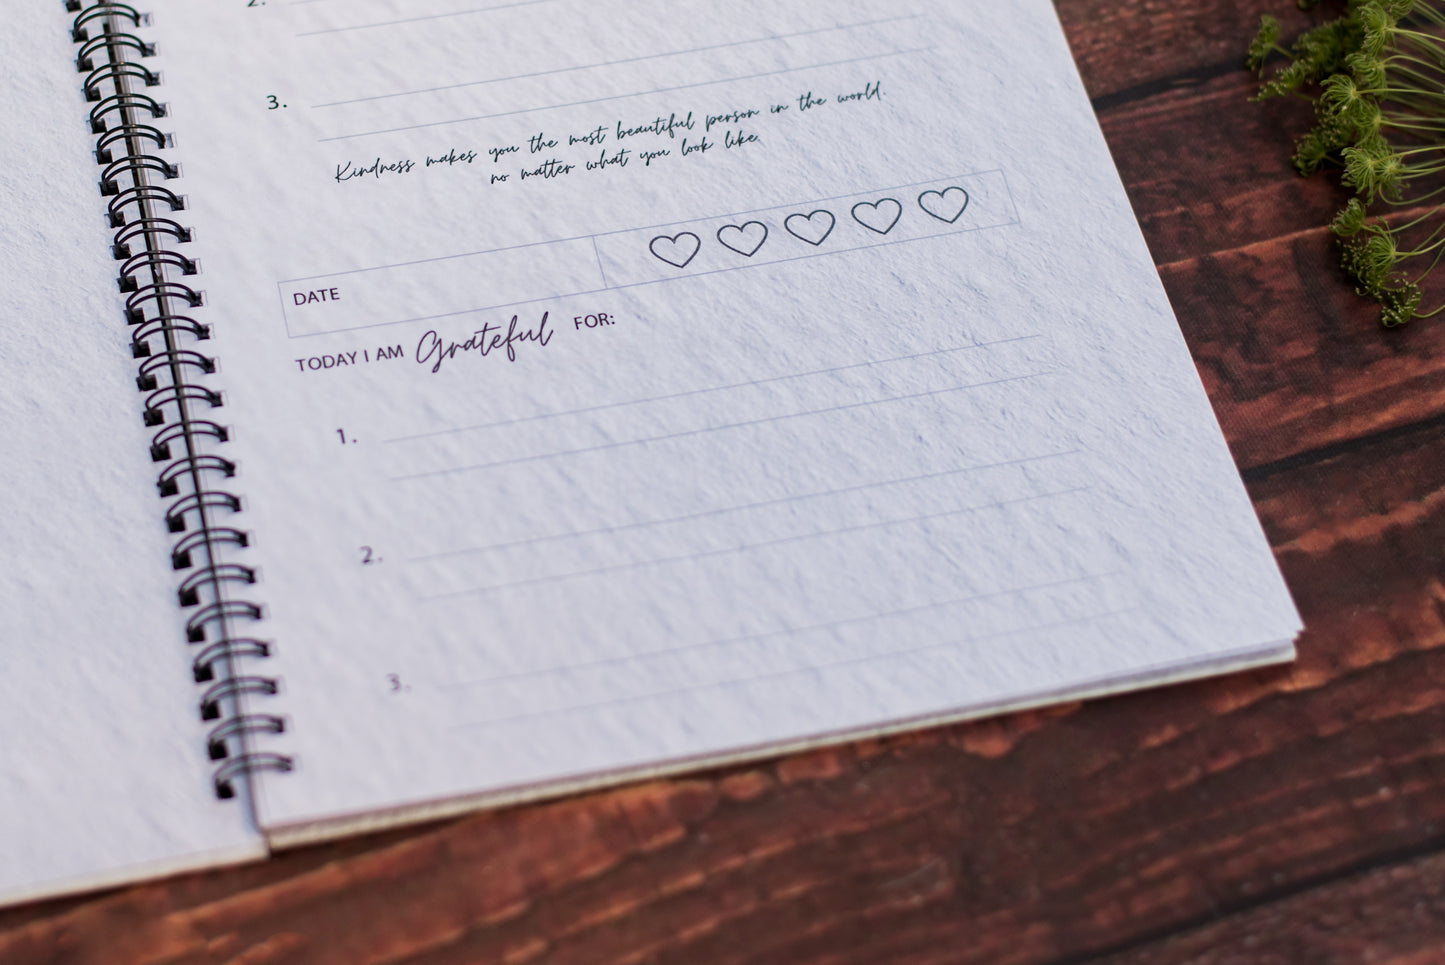 2.
3.
Kindness makes you the most beautiful person in the world.
no matter what you look like.
DATE
TODAY I AM Grateful FOR:
1.
2.
3.